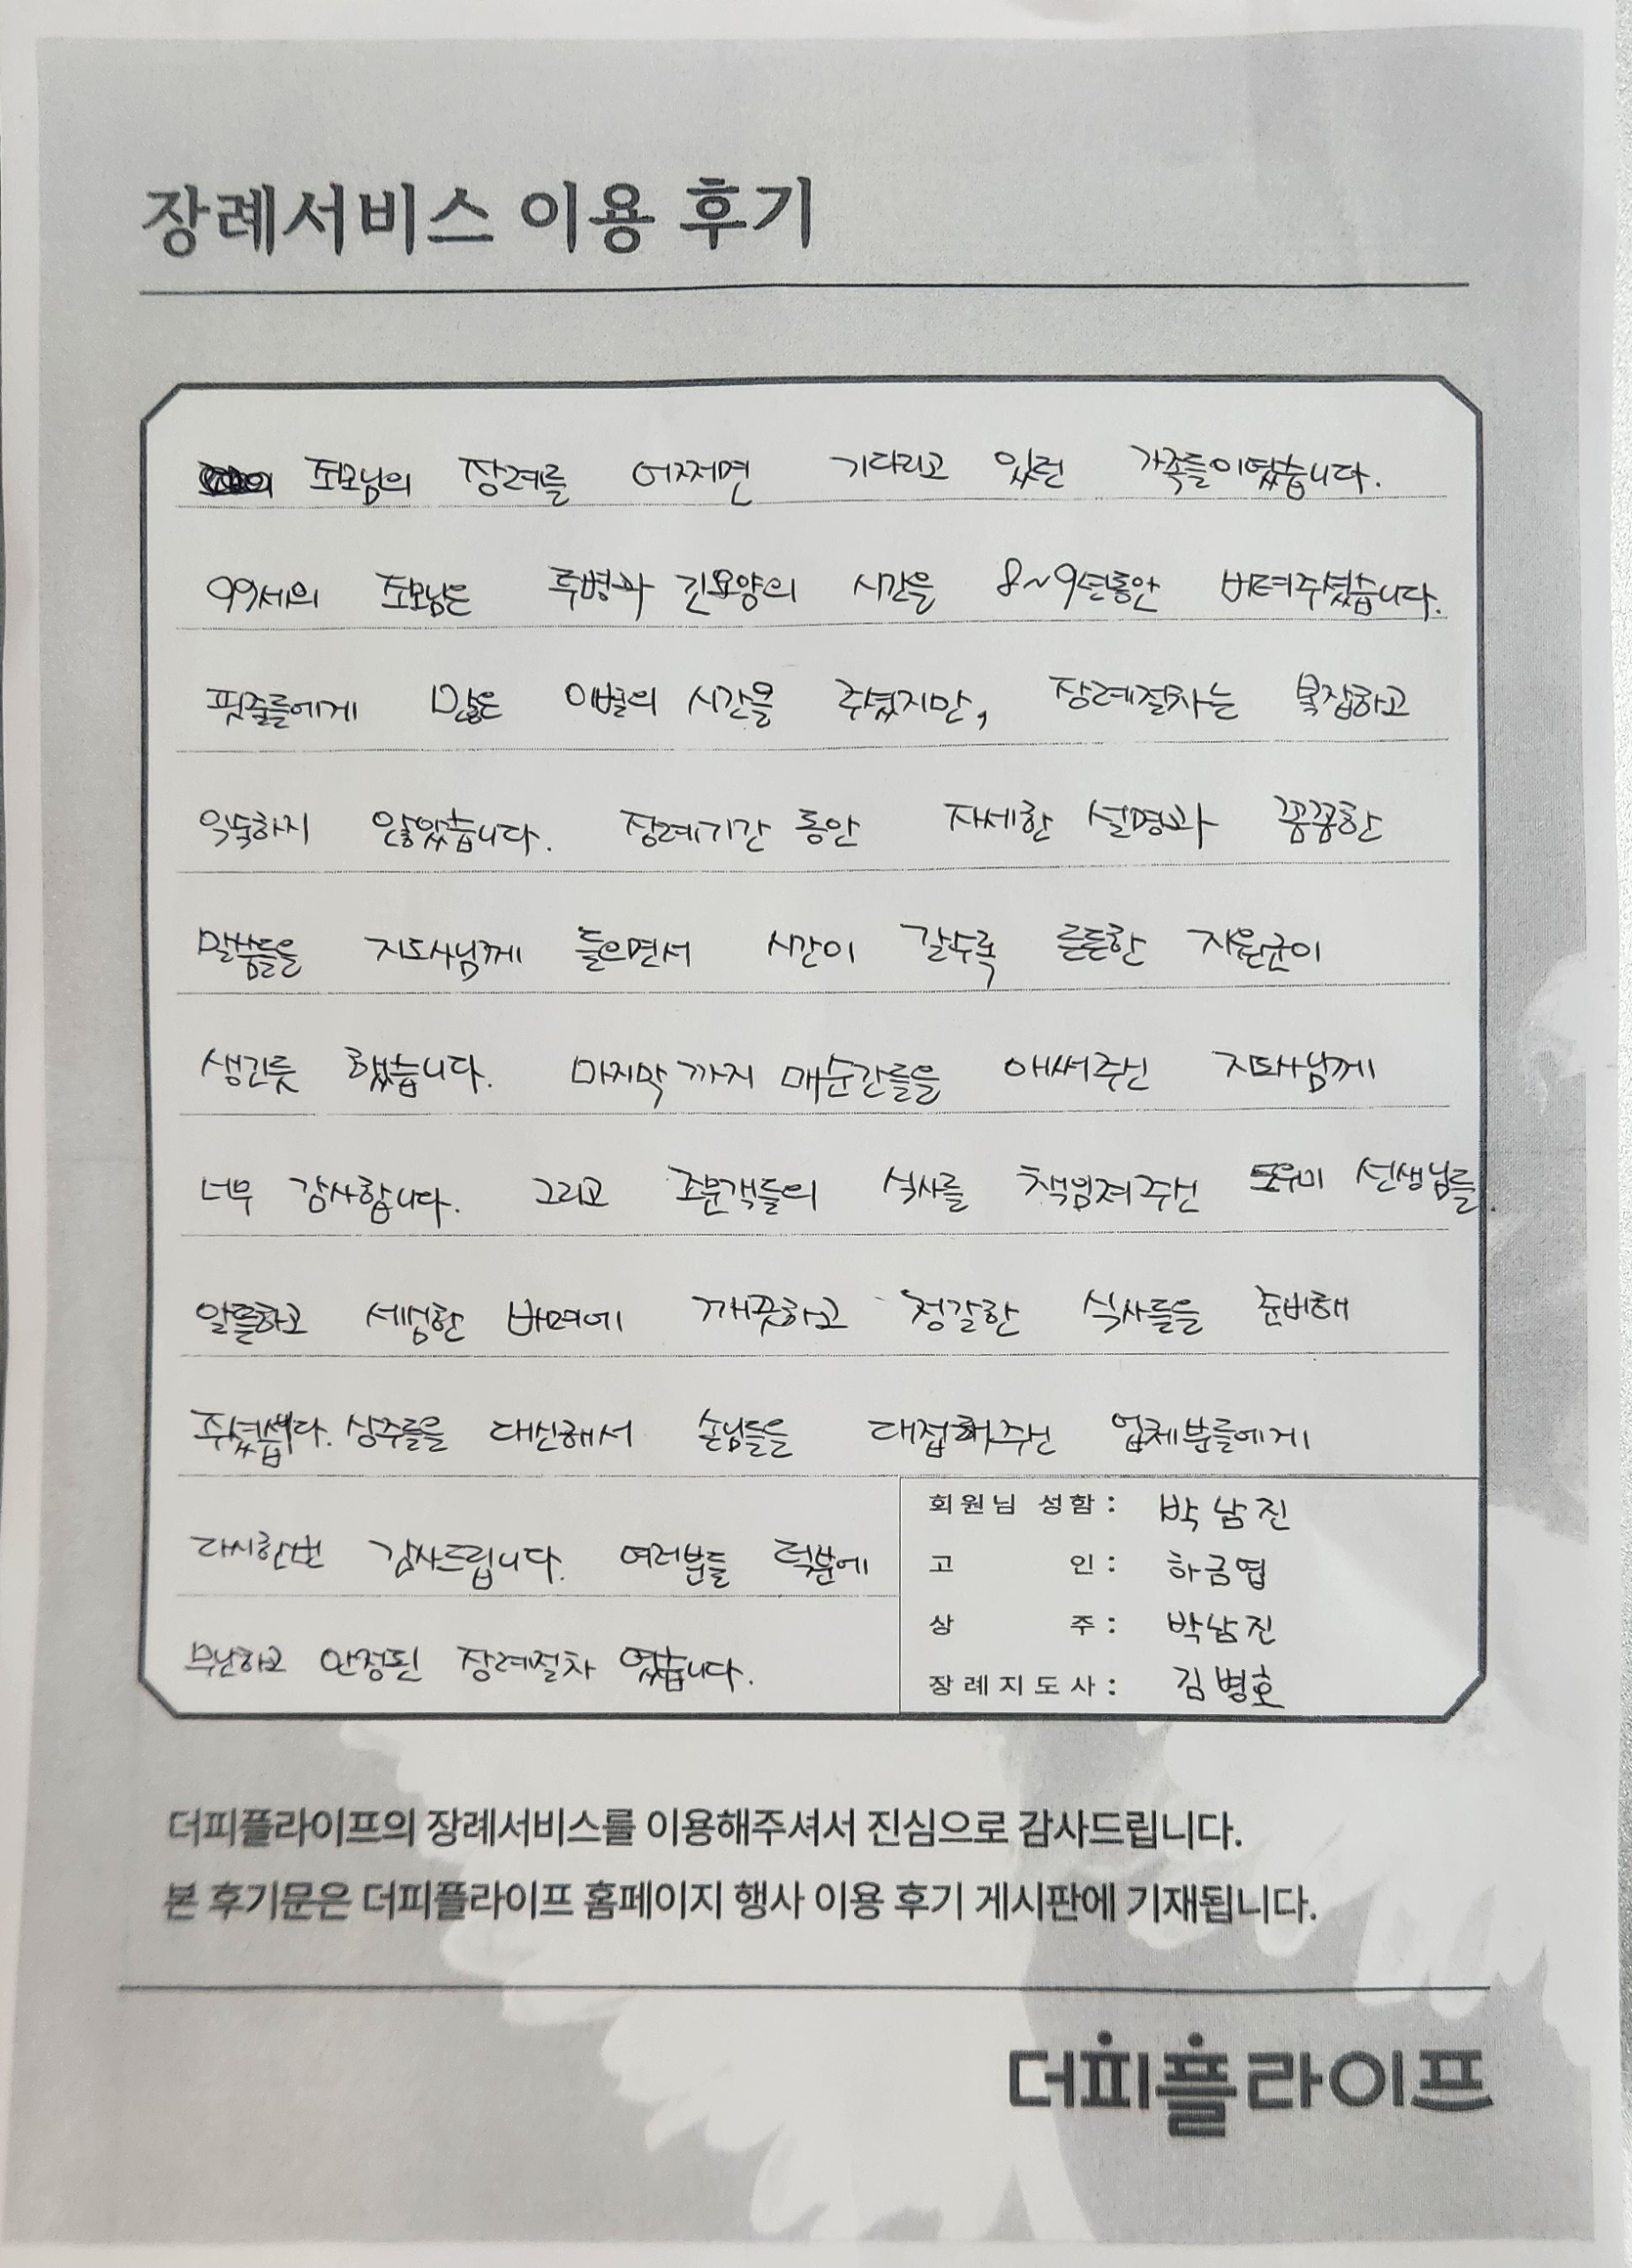 장례서비스 이용 후기
조모님의 장례를 어쩌면 기다리고 있던 가족들이였습니다.
99세의 조모님은 투병과 긴요양의 시간을 8~9년동안 버텨주셨습니다.
핏줄들에게 많은 이별의 시간을 주셨지만, 장례절차는 복잡하고
익숙하지 않았습니다. 장례기간 동안 자세한 설명과 꼼꼼한
말씀들을 지도사님께 들으면서 시간이 갈수록 든든한 지원군이
생긴듯 했습니다. 마지막 까지 매순간들을 애써주신 지도사님께
너무 감사합니다. 그리고 조문객들의 식사를 책임져주신 도우미 선생님들.
알뜰하고 세심한 배려에 깨끗하고 정갈한 식사들을 준비해
주셨습니다. 상주들을 대신해서 손님들을 대접해주신 업체분들에게
다시한번 감사드립니다. 여러분들 덕분에
무난하고 안정된 장례절차 였습니다.
회원님 성함: 박남진
고 인: 하금엽
상 주: 박남진
장례지도사: 김병호
더피플라이프의 장례서비스를 이용해주셔서 진심으로 감사드립니다.
본 후기문은 더피플라이프 홈페이지 행사 이용 후기 게시판에 기재됩니다.
더피플라이프